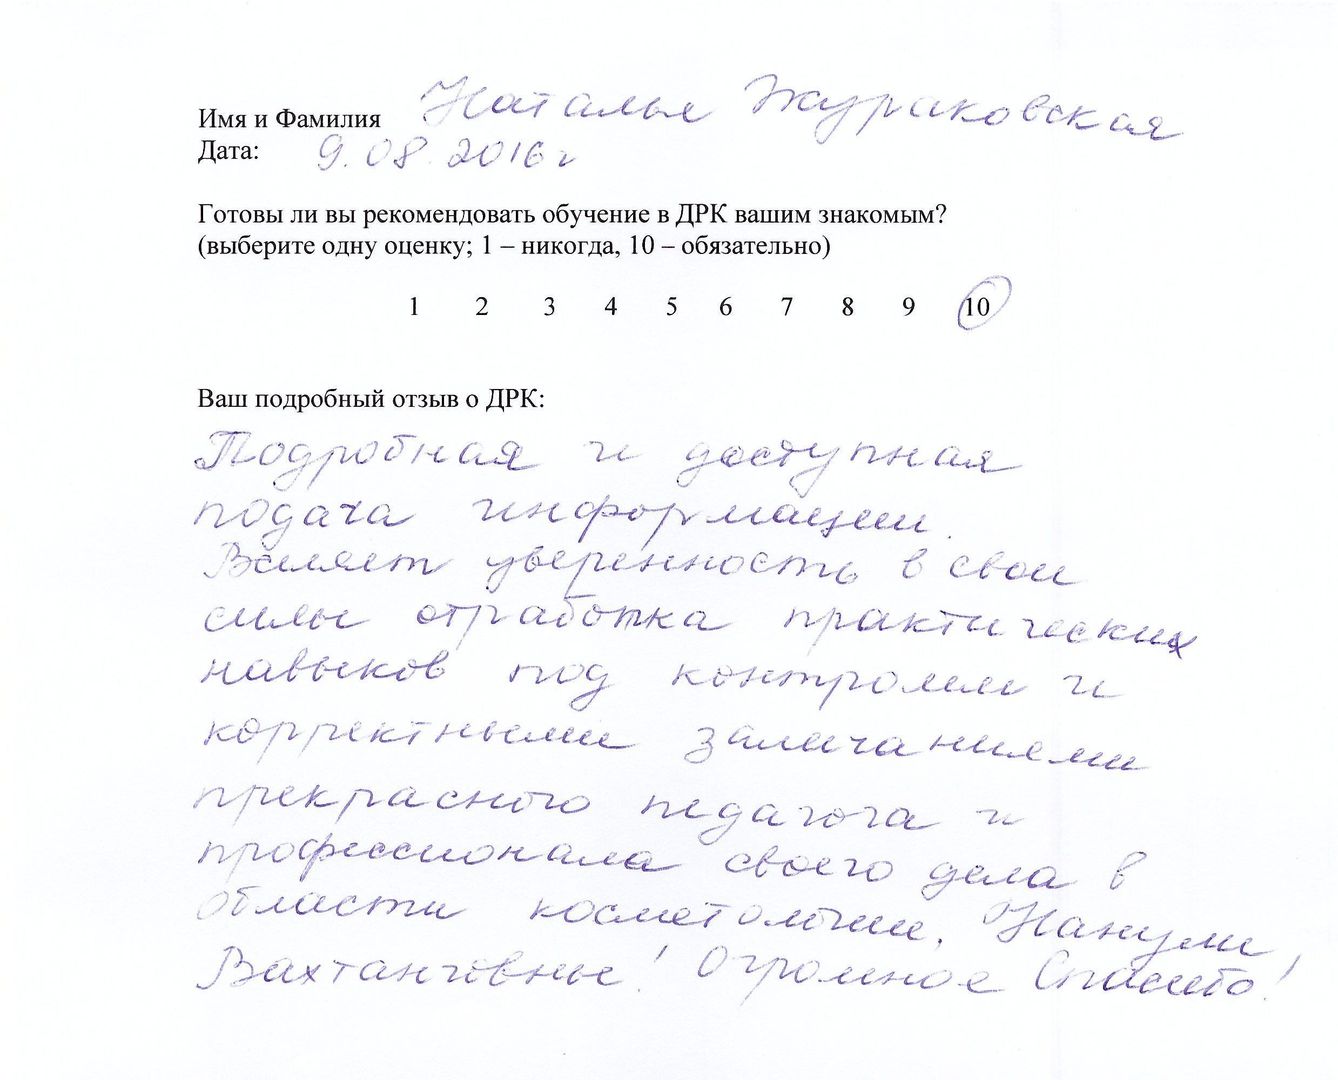 Имя и Фамилия Наталья Жураковская
Дата: 9.08.2016г
Готовы ли вы рекомендовать обучение в ДРК вашим знакомым?
(выберите одну оценку; 1 – никогда, 10 – обязательно)
1 2 3 4 5 6 7 8 9 10
Ваш подробный отзыв о ДРК:
Подробная и доступная
подача информации.
Вселяет уверенность в свои
силы отработка практических
навыков под контролем и
корректными замечаниями
прекрасного педагога и
профессионала своего дела в
области косметологии, Нанули
Вахтанговны! Огромное Спасибо!